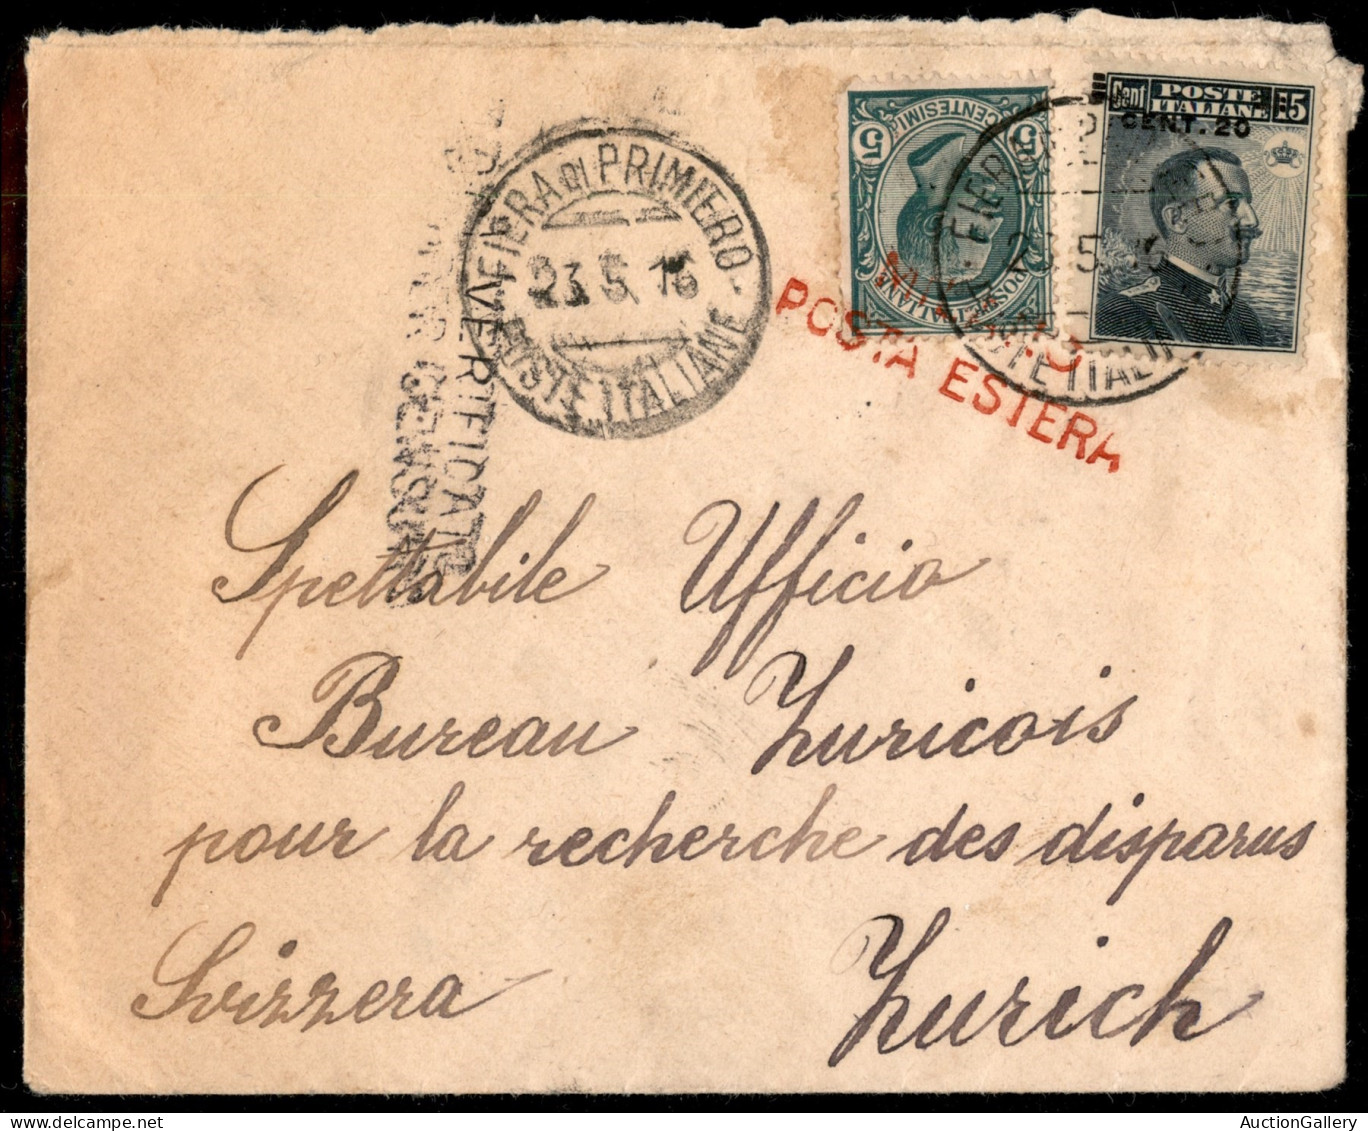 FIERA DI PRIMIERO
23.5.16
POSTE ITALIANE
VERIFICATO
CENTESIMI
5 5
POSTE ITALIANE
Cent POSTE ITALIANE 15
CENT. 20
POSTA ESTERA
Spettabile Ufficio
Bureau Zuricois
pour la recherche des disparus
Svizzera Zurich
AuctionGallery